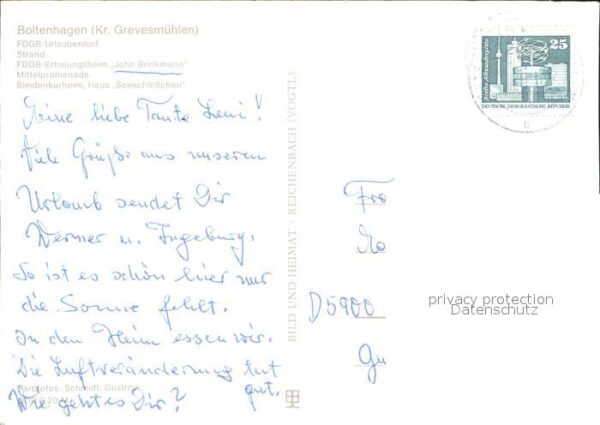 Boltenhagen (Kr. Grevesmühlen)
FDGB-Urlauberdorf
Strand
FDGB-Erholungsheim „John Brinkmann"
Mittelpromenade
Blindenkurheim, Haus „Seeschlößchen"
Meine liebe Tante Leni!
Viele Grüße aus unseren
Urlaub sendet Dir
Werner u. Ingeburg.
So ist es schön hier nur
die Sonne fehlt.
In den Heim essen wir.
Die Luftveränderung tut
gut.
Wie geht es Dir?
Farbfotos: Schmidt, Güstrow
BILD UND HEIMAT · REICHENBACH (VOGTL)
25
Berlin, Alexanderplatz
DEUTSCHE DEMOKRATISCHE REPUBLIK
Fra
D 5900
Gu
privacy protection
Datenschutz